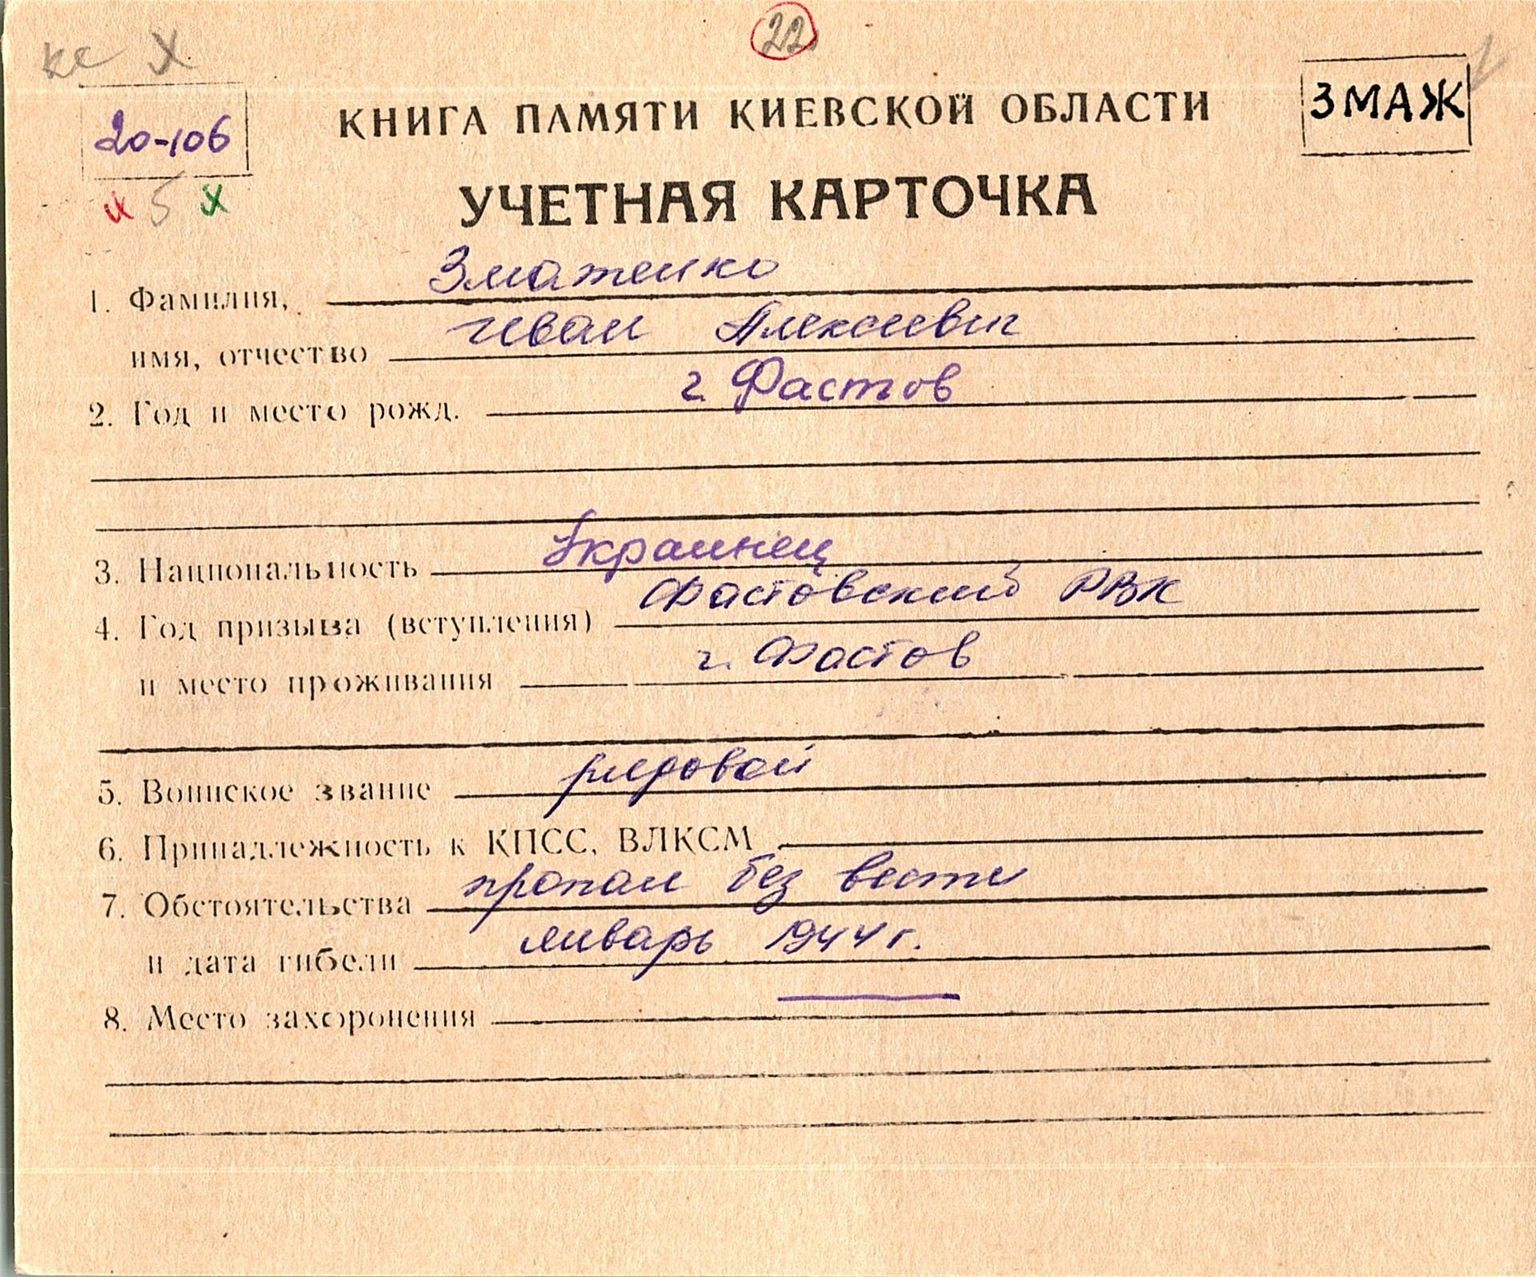 кс х
22
20-106
х 5 х
КНИГА ПАМЯТИ КИЕВСКОЙ ОБЛАСТИ
ЗМАЖ
УЧЕТНАЯ КАРТОЧКА
1. Фамилия, Змаженко
имя, отчество Иван Алексеевич
2. Год и место рожд. г. Фастов
3. Национальность Украинец
4. Год призыва (вступления) Фастовский РВК
и место проживания г. Фастов
5. Воинское звание рядовой
6. Принадлежность к КПСС, ВЛКСМ
7. Обстоятельства пропал без вести
и дата гибели январь 1944 г.
8. Место захоронения